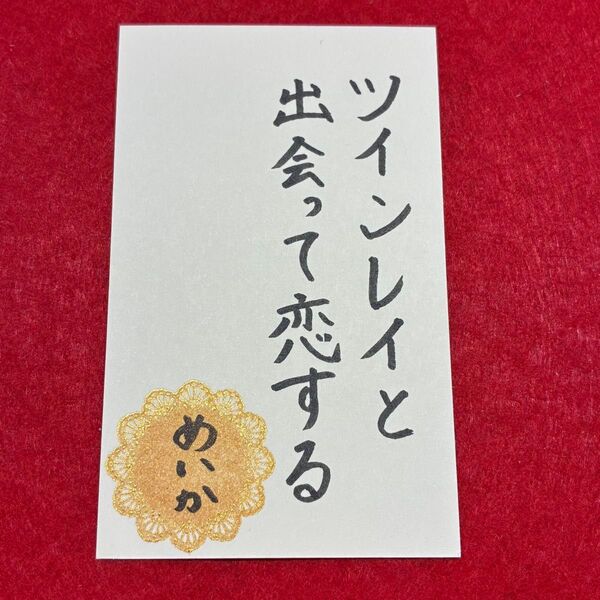 ツインレイと
出会って恋する
めいか